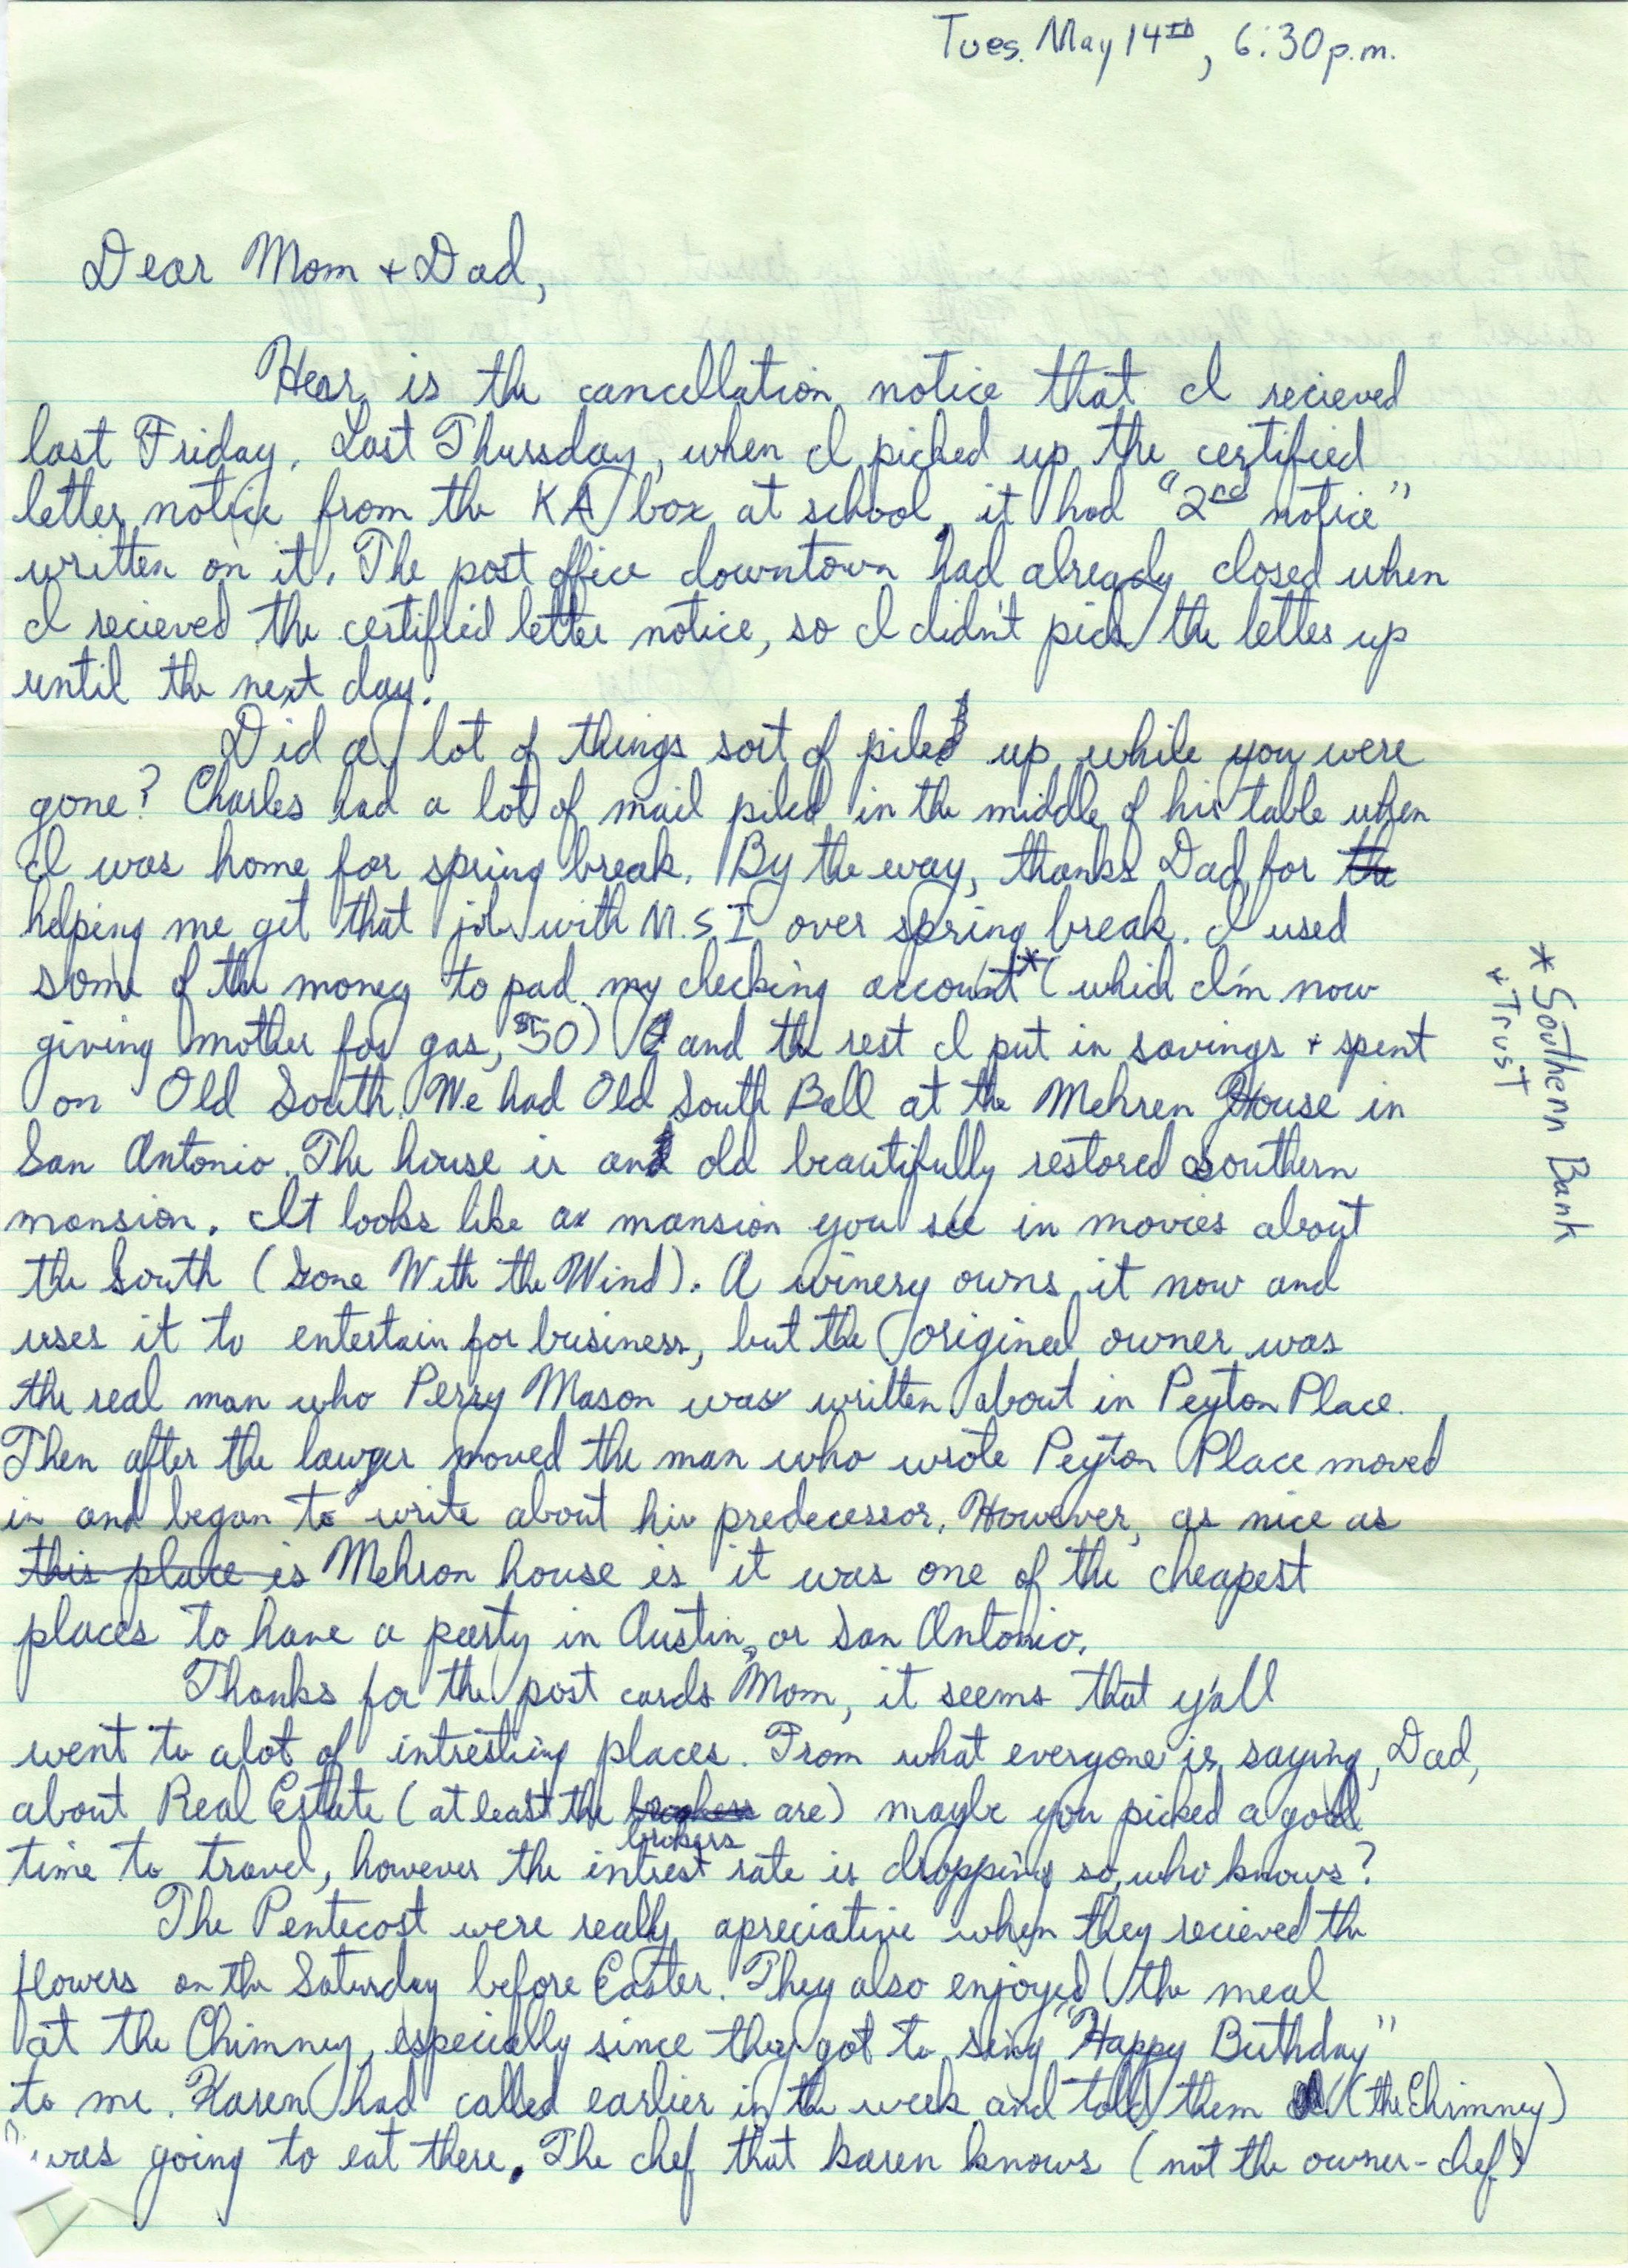 Tues. May 14th, 6:30 p.m.
Dear Mom + Dad,
Hear is the cancellation notice that I recieved
last Friday. Last Thursday, when I picked up the certified
letter notice from the KA box at school, it had "2nd notice"
written on it. The post office downtown had already closed when
I recieved the certified letter notice, so I didn't pick the letter up
until the next day.
Did a lot of things sort of piled up while you were
gone? Charles had a lot of mail piled in the middle of his table when
I was home for spring break. By the way, thanks Dad for the
helping me get that job with M.S.I over spring break. I used
some of the money to pad my checking account* (which I'm now
giving mother for gas, $50) and the rest I put in savings + spent
on Old South. We had Old South Ball at the Mehren House in
San Antonio. The house is an old beautifully restored southern
mansion. It looks like a mansion you see in movies about
the South (Gone With the Wind). A winery owns it now and
uses it to entertain for business, but the original owner was
the real man who Perry Mason was written about in Peyton Place.
Then after the lawyer moved the man who wrote Peyton Place moved
in and began to write about his predecessor. However, as nice as
this place is Mehron house is it was one of the cheapest
places to have a party in Austin, or San Antonio.
Thanks for the post cards Mom, it seems that y'all
went to alot of intresting places. From what everyone is saying, Dad,
about Real Estate (at least the brokers are) maybe you picked a good
time to travel, however the intrest rate is dropping so, who knows?
The Pentecost were really apreciative when they recieved the
flowers on the Saturday before Easter. They also enjoyed the meal
at the Chimney, especially since they got to sing "Happy Birthday"
to me. Karen had called earlier in the week and told them (the Chimney)
I was going to eat there. The chef that karen knows (not the owner-chef)
* Southern Bank
+ Trust